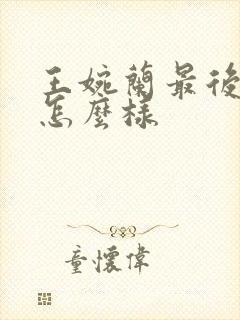 王婉蘭最後
怎麼樣
童懷偉